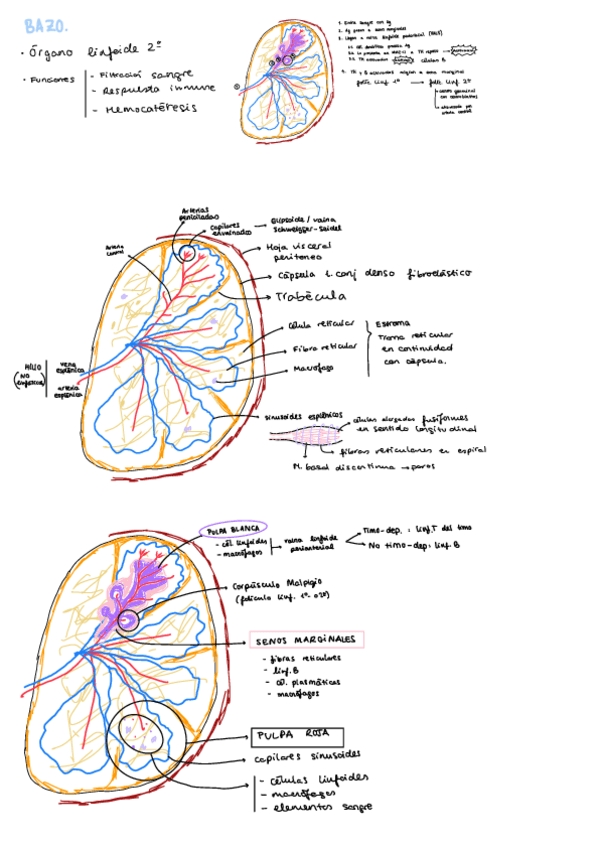 BAZO.
· Órgano linfoide 2º
· Funciones
- Filtración sangre
- Respuesta inmune
- Hemocatéresis
1. Entra sangre con Ag
3.
Células B
folíc. linf. 1º → folíc. linf. 2º
Arterias peniciladas
Capilares envainados
Elipsoide / vaina Schweigger-Seidel
Arteria central
Hoja visceral peritoneo
Cápsula t. conj denso fibroelástico
Trabécula
Célula reticular
Fibra reticular
Macrófago
Estroma
Trama reticular
en continuidad
con cápsula.
Hilio
(no linfático)
vena esplénica
arteria esplénica
sinusoides esplénicos
células alargadas fusiformes
en sentido longitudinal
fibras reticulares en espiral
M. basal discontinua → poros
PULPA BLANCA
- cél linfoides
- macrófagos
vaina linfoide periarterial
Timo-dep.: linf. T del timo
No timo-dep: linf. B
Corpúsculo Malpigio
(folículo linf. 1º o 2º)
SENOS MARGINALES
- fibras reticulares
- linf. B
- cél. plasmáticas
- macrófagos
PULPA ROJA
capilares sinusoides
- células linfoides
- macrófagos
- elementos sangre